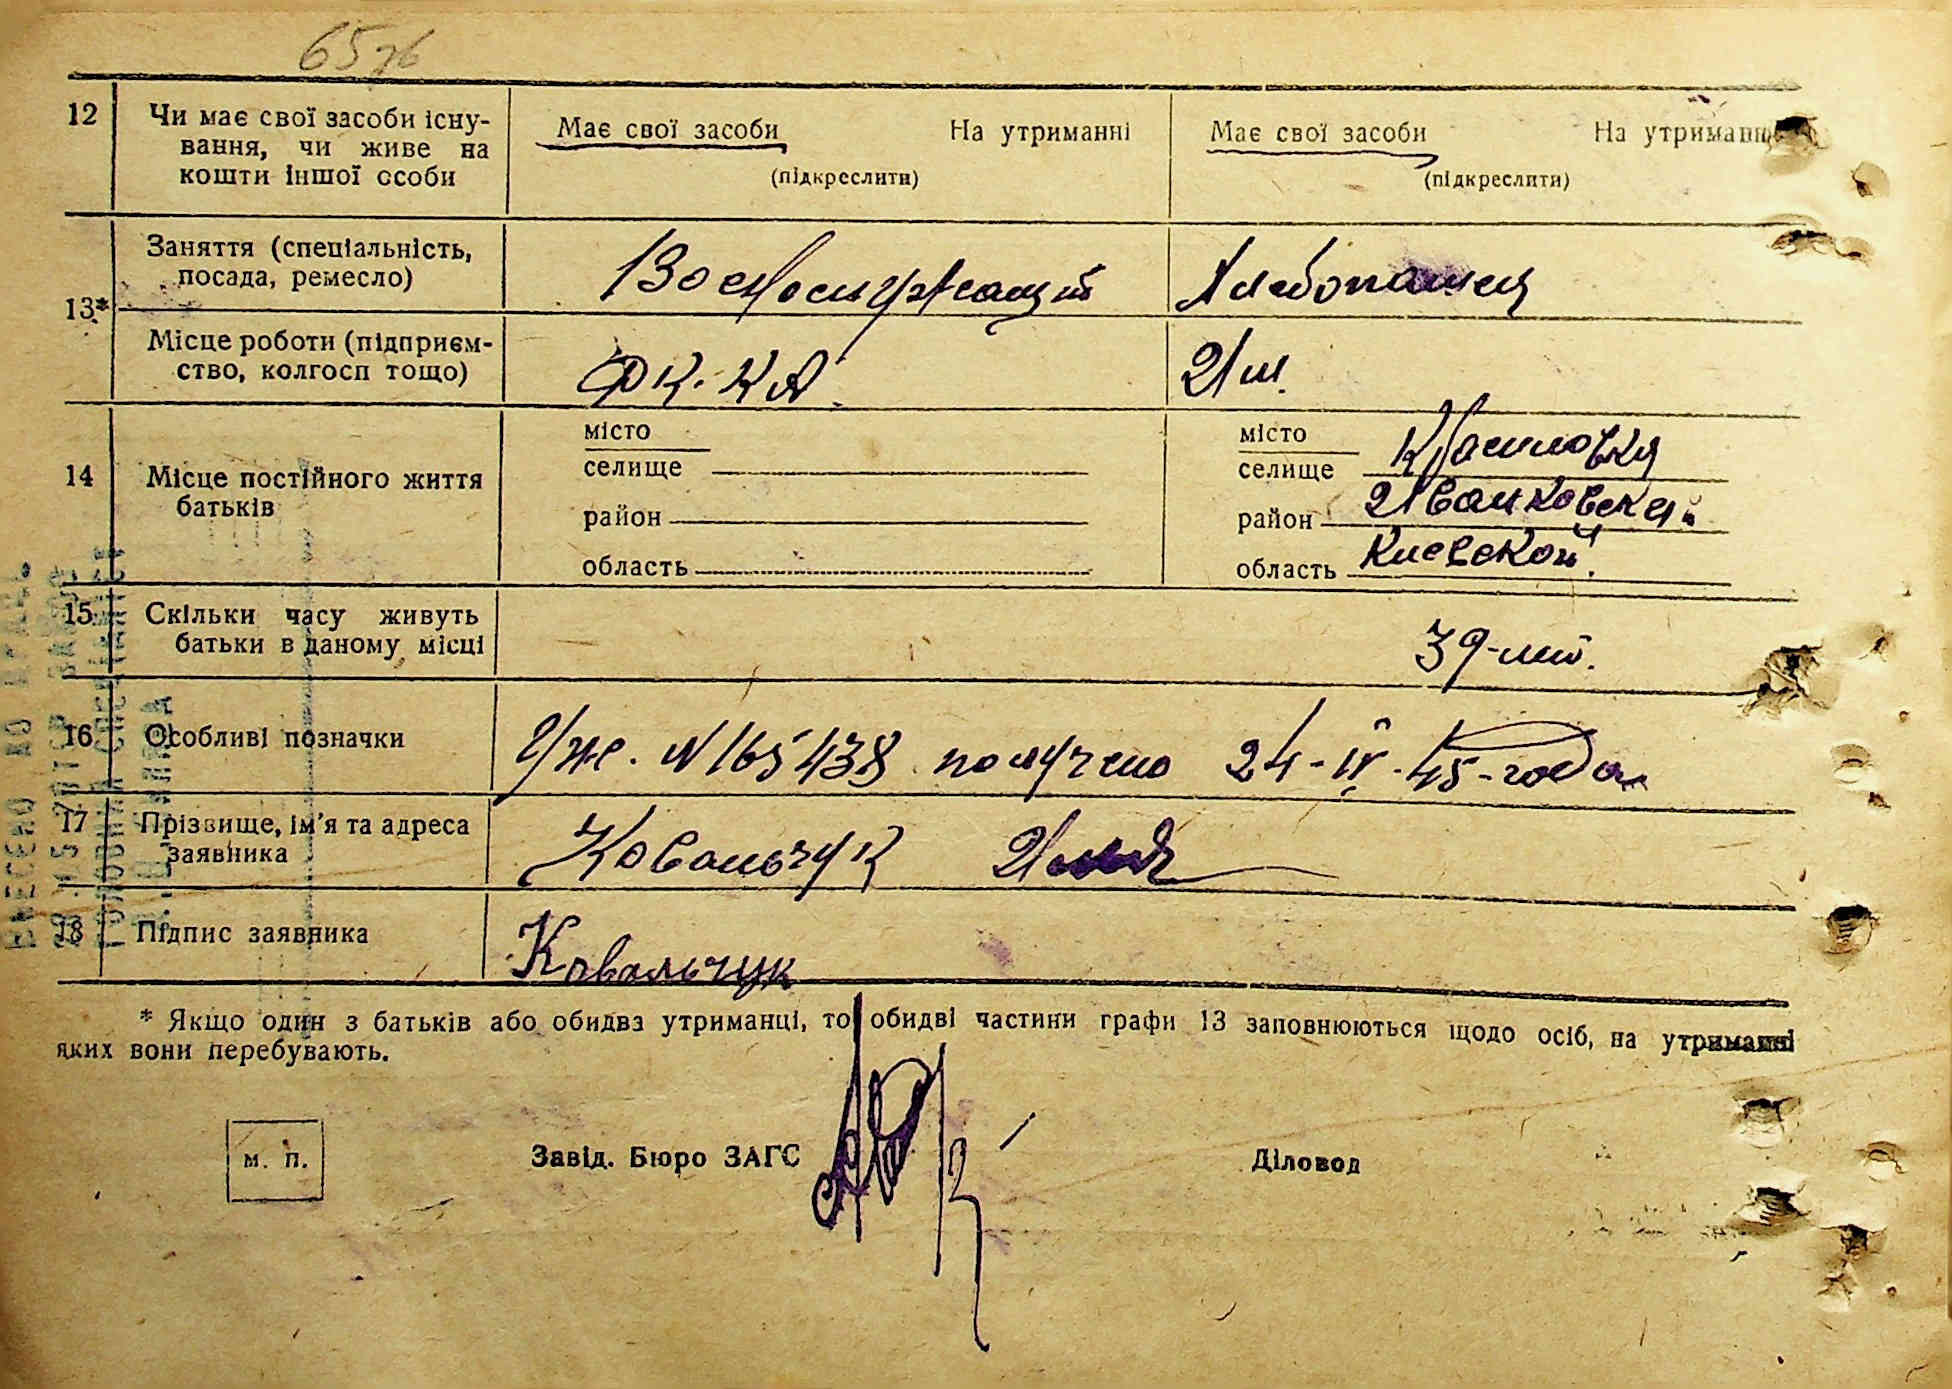 65
12 Чи має свої засоби існу-
вання, чи живе на
кошти іншої особи
Має свої засоби На утриманні
(підкреслити)
Має свої засоби На утриманні
(підкреслити)
13*
Заняття (спеціальність,
посада, ремесло)
Военослужащий
Хлебопашец
Місце роботи (підприєм-
ство, колгосп тощо)
РК.КА.
14 Місце постійного життя
батьків
місто
селище
район
область
місто
селище
район Иванковский
область Киевской
15 Скільки часу живуть
батьки в даному місці
39-лет.
16 Особливі позначки
N 165438 получено 24-IV-45-года
17 Прізвище, ім'я та адреса
заявника
Ковальчук Илья
18 Підпис заявника
Ковальчук
* Якщо один з батьків або обидва утриманці, то обидві частини графи 13 заповнюються щодо осіб, на утриманні
яких вони перебувають.
м. п.
Завід. Бюро ЗАГС
Діловод